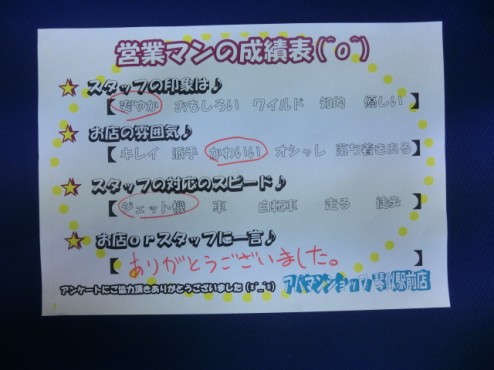 営業マンの成績表(^o^)
スタッフの印象は♪
【 爽やか おもしろい ワイルド 知的 優しい 】
お店の雰囲気♪
【 キレイ 派手 かわいい オシャレ 落ち着きある 】
スタッフの対応のスピード♪
【 ジェット機 車 自転車 走る 徒歩 】
お店orスタッフに一言♪
【 ありがとうございました。 】
アンケートにご協力頂きありがとうございました
アパマンショップ 駅前店